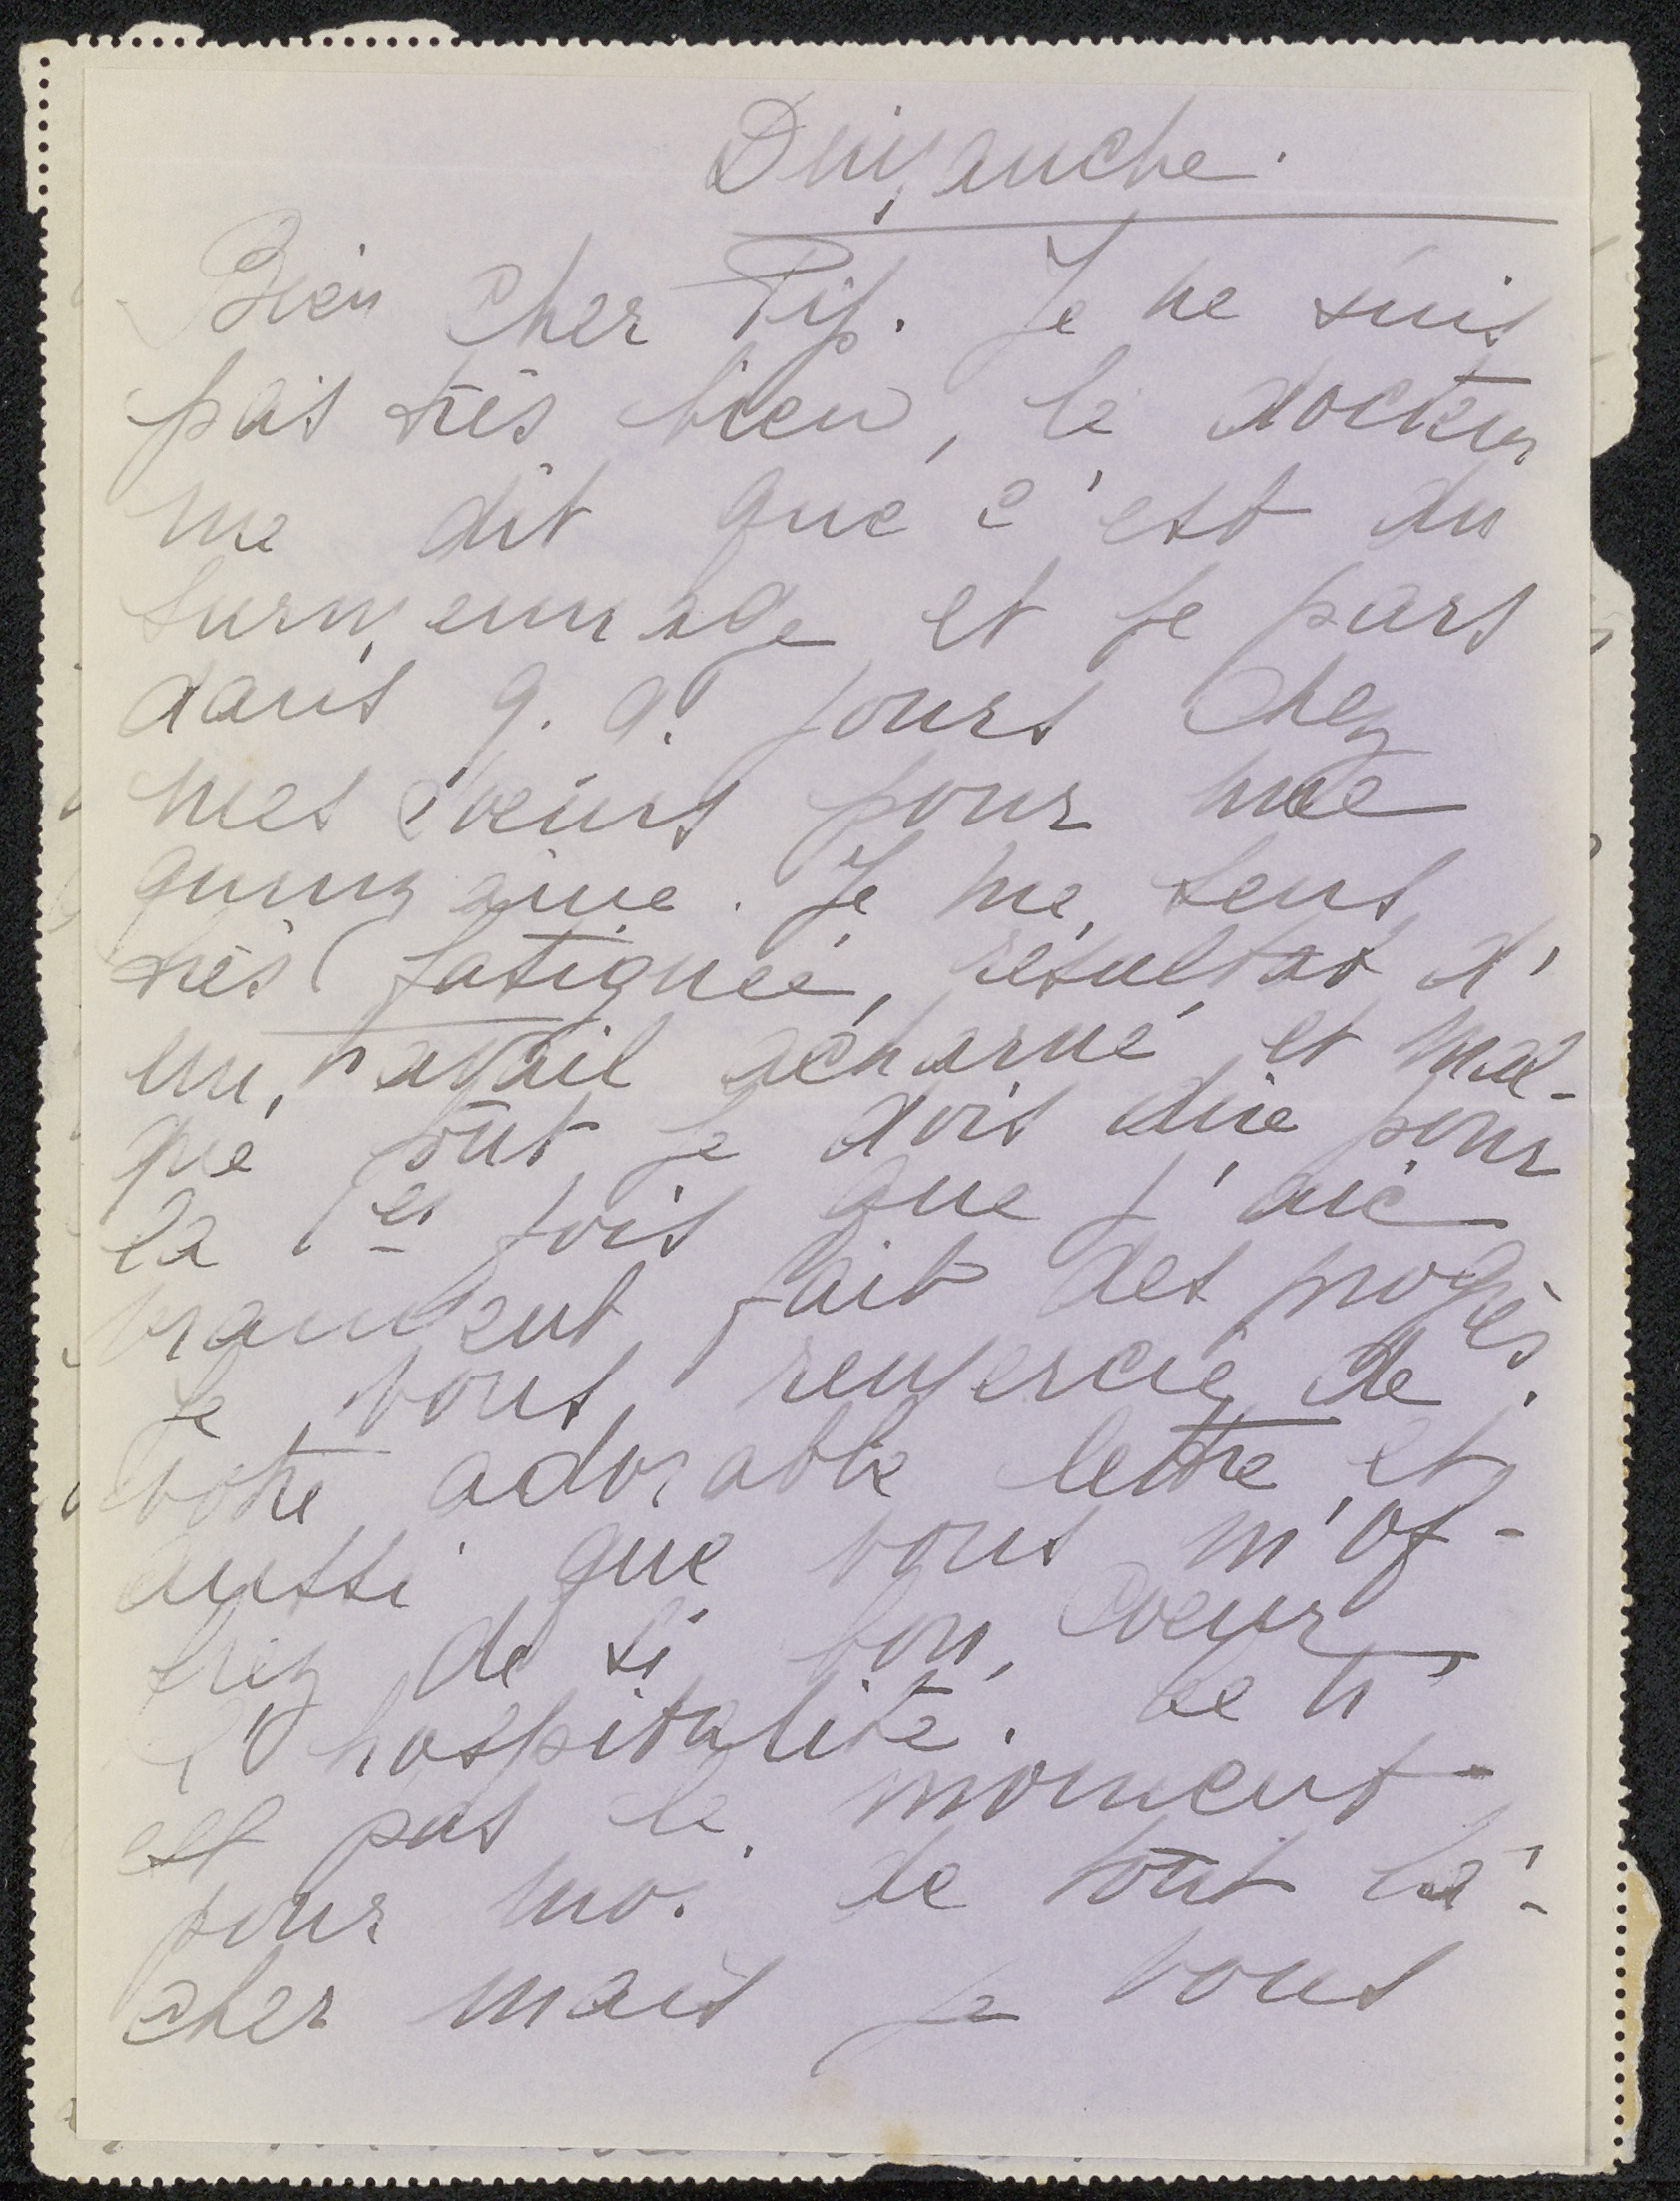 Dimanche.
Bien cher Pip. Je ne suis
pas très bien, le docteur
me dit que c'est du
surmennage et je pars
dans q.q. jours chez
mes soeurs pour une
quinzaine. Je me sens
très fatiguée, résultat d'
un travail acharné et mal-
gré tout je dois dire pour
la 1er fois que j'aie
vraiment fait des progrès.
Je vous remercie de
votre adorable lettre et
aussi que vous m'of-
frez de si bon coeur
l'hospitalité. Ce n'
est pas le moment
pour moi de tout lâ-
cher mais je vous